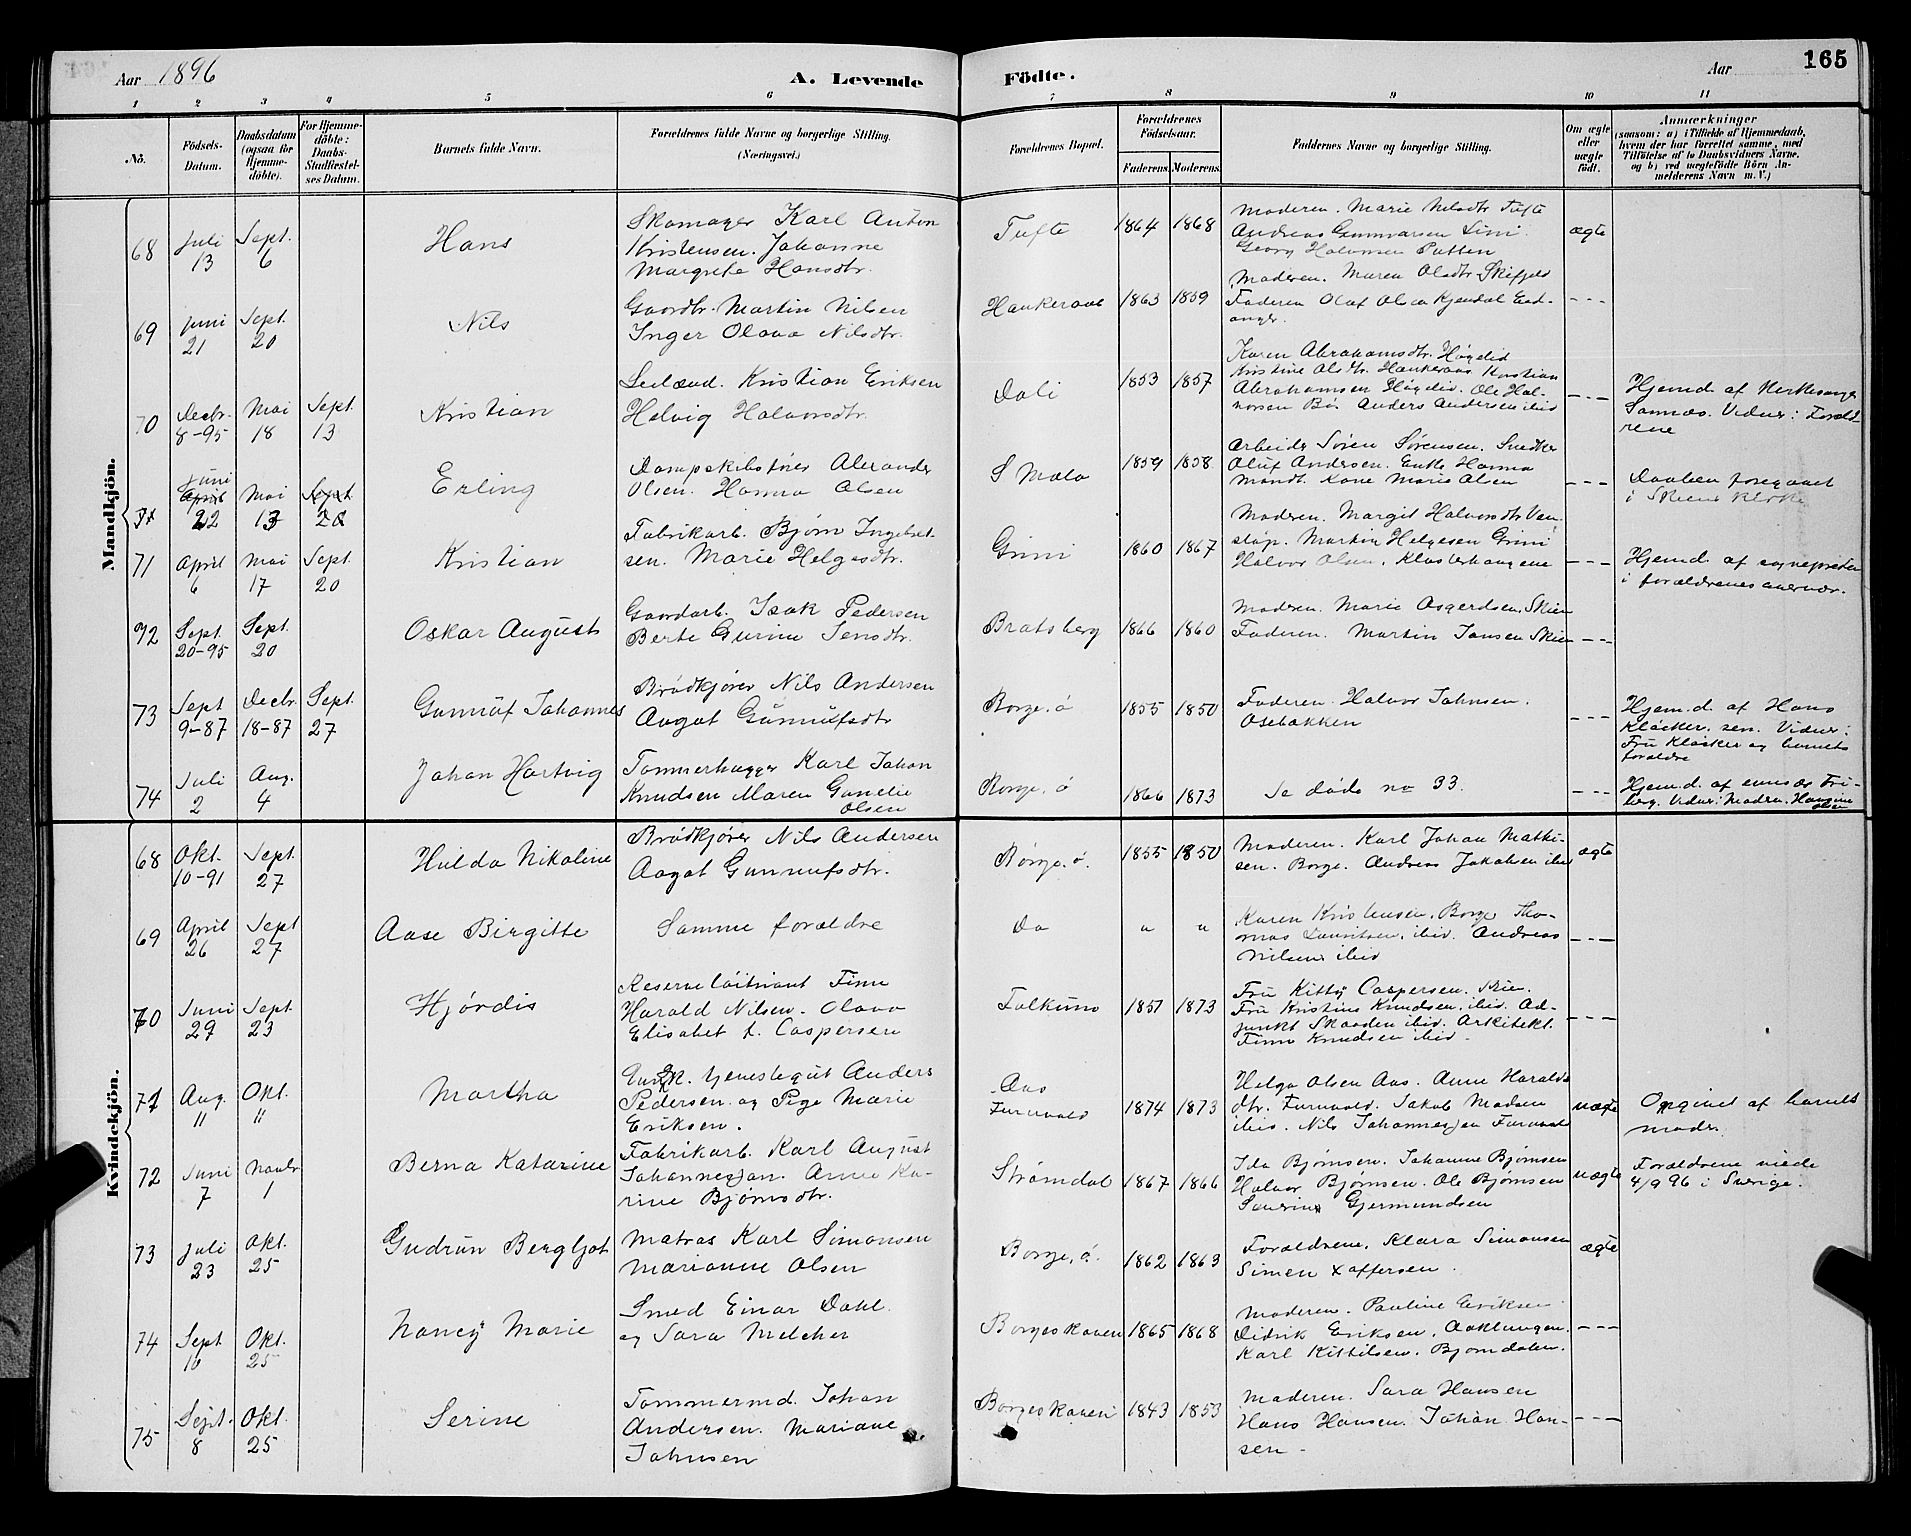 Aar 1896 A. Levende Födte. Aar 165
1 2 3 4 5 6 7 8 9 10 11
No. Födsels-Datum. Daabsdatum (ogsaa for Hjemmedöbte). For Hjemmedöbte: Daabs-Stadfæstelses Datum. Barnets fulde Navn. Forældrenes fulde Navne og borgerlige Stilling. (Næringsvei.) Forældrenes Bopæl. Forældrenes Födselsaar. Faderens. Moderens. Faddernes Navne og borgerlige Stilling. Om ægte eller uægte födt. Anmærkninger (saasom: a) i Tilfælde af Hjemmedaab, hvem der har forrettet samme, med Tilföielse af to Daabsvidners Navne, og b) ved uægtefödte Börn Anmelderens Navn m. V.)
Mandkjön.
68 Juli 13 Sept. 6 Hans
Skomager Karl Anton
Kristensen. Johanne
Margrete Hansdtr.
Tufte 1864 1868
Moderen. Marie Nilsdtr Tufte
Andreas Gunnarsen Limi.
Georg Halvorsen Patten
ægte
69 Juni 21 Sept. 20 Nils
Gaardbr. Martin Nilsen
Inger Olava Nilsdtr.
Haukeraae 1863 1859
Moderen. Maren Olsdtr Skifjeld
Faderen Olaf Olsen Kjendal Eid-
anger.
---
70 Decbr. 8-95 Mai 18 Sept. 13 Kristian
Leilænd. Kristian Eriksen
Helvig Halvorsdtr.
Dali 1853 1857
Karen Abrahamsdtr. Høgelid
Kristine Olsdtr. Haukeraas Kristian
Abrahamsen Høgelid. Ole Hal-
vorsen Bø. Anders Andersen ibid
---
Hjemd. af Kirkesanger
Sannæs. Vidner: Foræld-
rene
71 Juni 22 Mai 13 Sept. 20 Erling
Dampskibsfører Alexander
Olsen. Hanna Olsen
S Mæla 1859 1858
Arbeider Søren Sørensen. Snedker
Oluf Andersen. Enke Hanna
Mandt. Kone Marie Olsen
---
Daaben foregaaet
i Skiens Kirke
71 April 6 Mai 17 Sept. 20 Kristian
Fabrikarb. Bjørn Ingebret-
sen. Marie Helgesdtr.
Grini 1860 1867
Moderen. Margit Halvorsdtr Ven-
støp. Martin Helgesen Grini
Halvor Olsen. Klosterhaugene
---
Hjemd. af sognepresten
i forældrenes nærvær.
72 Sept. 20-95 Sept. 20 Oskar August
Gaardarb. Isak Pedersen
Berte Gurine Jensdtr.
Bratsberg 1866 1860
Moderen. Marie Asgerdsen, Skien
Faderen. Martin Jansen Skien
---
73 Sept 9-87 Decbr. 18-87 Sept. 27 Gunnuf Johannes
Brødkjører Nils Andersen
Aagot Gunnufsdtr
Borge, ø 1855 1850
Faderen. Halvor Johnsen.
Osebakken
---
Hjemd. af Hans
Kløcker, sen. Vidner:
Fru Kløcker og barnets
forældre
74 Juli 2 Aug. 4 Johan Hartvig
Tømmerhugger Karl Johan
Knudsen Maren Gunelie
Olsen
Borge, ø 1866 1873
Se døde no 33.
---
Hjemd. af
Vidner: Modren.
Kvindekjön.
68 Okt. 10-91 Sept. 27 Hulda Nikoline
Brødkjører Nils Andersen
Aagot Gunnufsdtr.
Børge, ø. 1855 1850
Moderen. Karl Johan Mathi-
sen. Borge. Andreas Jakobsen ibid
ægte
69 April 26 Sept 27 Aase Birgitte
Samme forældre
Do " "
Karen Kristensen, Borge Tho-
mas Lauritsen, ibid. Andreas
Nilsen ibid
---
70 Juni 29 Sept. 23 Hjørdis
Reserveløitnant Finn
Harald Nilsen. Olava
Elisabet f. Caspersen
Falkum 1857 1873
Fru Kitty Caspersen. Skien.
Fru Kristine Knudsen. ibid. Ad-
junkt Skaaden ibid. Arkitekt.
Finn Knudsen ibid.
---
71 Aug. 11 Okt. 11 Martha
Unk. tjenestegut Anders
Pedersen og Pige Marie
Eriksen.
Aas
Furuvald 1874 1873
Helga Olsen Aas. Anne Haralds-
dtr. Furuvald. Jakob Madsen
ibid. Nils Johannesen Furuvald
uægte
Opgivet af barnets
moder.
72 Juni 7 Novbr 1 Berna Katarine
Fabrikarb. Karl August
Johannesson. Anne Ka-
rine Bjørnsdtr.
Strømdal 1867 1866
Ida Bjørnsen. Johanne Bjørnsen
Halvor Bjørnsen. Ole Bjørnsen
Severine Gjermundsen
uægte
Forældrene viede
4/9 96 i Sverige.
73 Juli 23 Okt. 25 Gudrun Bergljot
Matros Karl Simonsen
Marianne Olsen
Borge, ø. 1862 1863
Forældrene. Klara Simonsen
Simen Kaffersen.
ægte
74 Sept 10 Okt. 25 Nancy Marie
Smed Einar Dahl
og Sara Melcher
Borgeskaven 1865 1868
Moderen. Pauline Eriksen
Didrik Eriksen. Aaklungen.
Karl Kittilsen. Bjørndalen.
---
75 Sept. 8 Okt. 25 Serine
Tømmermd. Johan
Andersen. Mariane
Johnsen
Borgeskaven 1843 1853
Moderen. Sara Hansen
Hans Hansen. Johan Han-
sen.
---